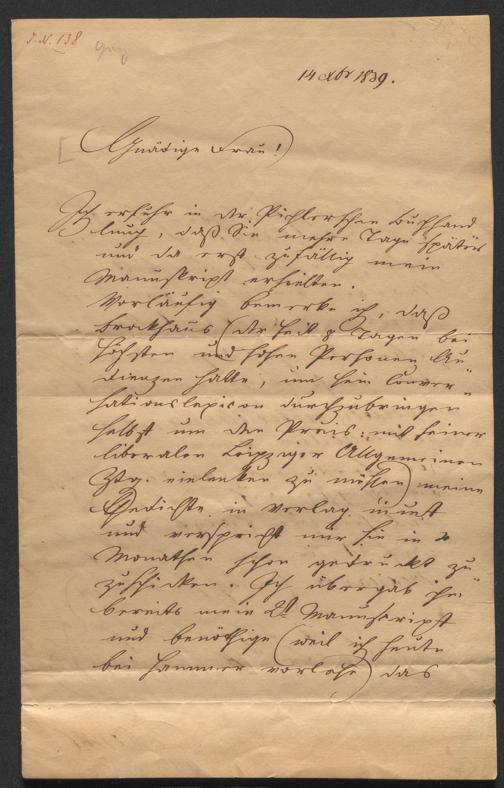 J.N. 138
14 Xbr 1839.
Gnädige Frau!
Ich erfuhr in der Pichlerschen Buchhand
lung, daß Sie mehre Tage später
und da erst zufällig mein
Manuskript erhielten.
Vorläufig bemerke ich, daß
Brockhaus (der seit 8 Tagen bei
höchsten und hohen Personen Au-
dienzen hatte, um sein Conver-
sationslexicon durchzubringen
selbst um den Preis: mit seiner
liberalen Leipziger Allgemeinen
Ztg. einlenken zu müssen) meine
Gedichte in Verlag nimt
und verspricht mir sie in 2
Monathen schon gedruckt zu-
zuschicken. Ich übergab ihm
bereits mein 2t Manuscript
und benöthige (weil ich heute
bei Hammer vorlese) das